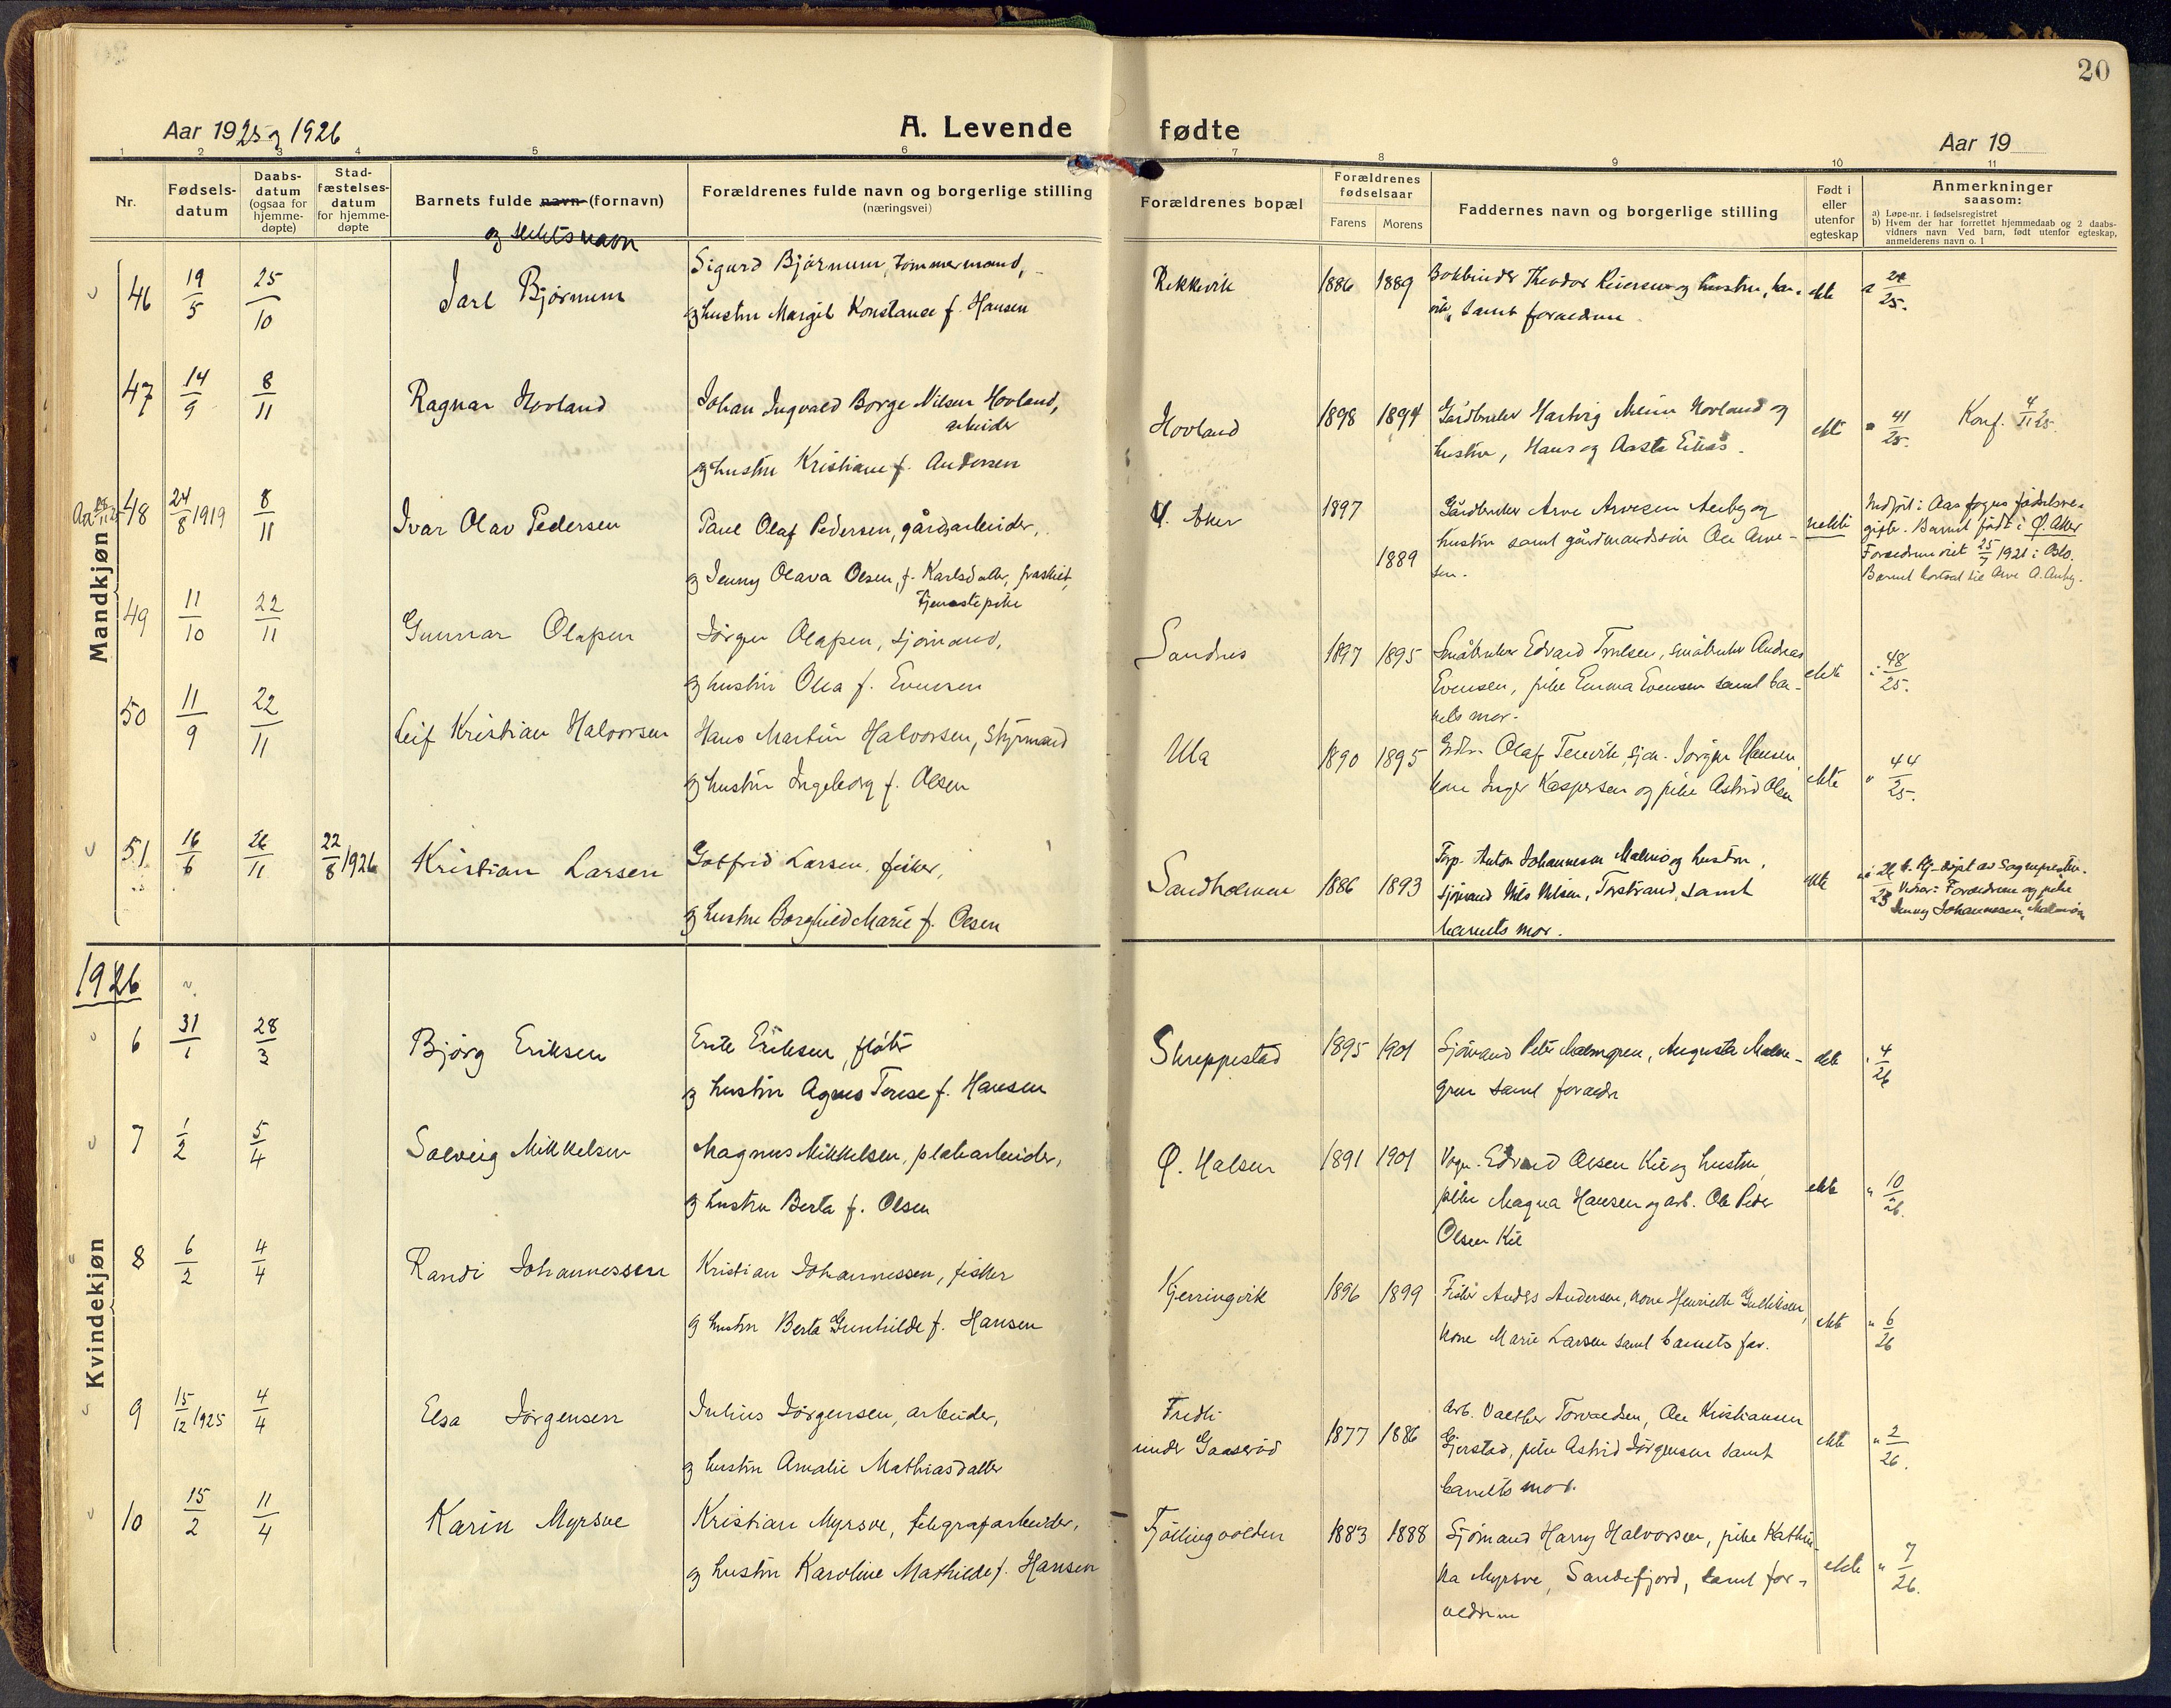 20
Aar 1925 og 1926
A. Levende fødte
Aar 19
1 2 3 4 5 6 7 8 9 10 11
Nr.
Fødsels-
datum
Daabs-
datum
(ogsaa for
hjemme-
døpte)
Stad-
fæstelses-
datum
for hjemme-
døpte
Barnets fulde navn (fornavn)
og slektsnavn
Forældrenes fulde navn og borgerlige stilling
(næringsvei)
Forældrenes bopæl
Forældrenes
fødselsaar
Farens Morens
Faddernes navn og borgerlige stilling
Født i
eller
utenfor
egteskap
Anmerkninger
saasom:
a) Løpe-nr. i fødselsregistret
b) Hvem der har forrettet hjemmedaab og 2 daabs-
vidners navn Ved barn, født utenfor egteskap,
anmelderens navn o. l
Mandkjøn
46 19/5 25/10 Jarl Bjørnum
Sigurd Bjørnum, tømmermand,
og hustru Margit Konstance f. Hansen
Rekkevik 1886 1889
Bokbinder Theodor Iversen og hustru,
samt forældrene
ekte a 24/25.
47 14/9 8/11 Ragnar Hovland
Johan Ingvald Borge Nilsen Hovland,
arbeider
og hustru Kristiane f. Andersen
Hovland 1898 1894
Gårdbruker Hartvig Hovland og
hustru, Hans og Aasta
ekte " 41/25. Konf. 4/11 25.
48 24/8 1919 8/11 Ivar Olav Pedersen
Paul Olaf Pedersen, gårdsarbeider,
og Jenny Olava Olsen, f. Karlsdatter, fraskilt,
tjenestepike
Ø. Aker 1897
1889
Gårdbruker Arve Arvesen Auby og
hustru samt gårdmandssøn Ole Arve-
sen.
uekte
Indført i Aas sogns fødselsre-
gister. Barnet født i Ø. Aker
Forældrene viet 25/7 1921 i Oslo.
Barnet bortsat til Arve A. Auby.
49 11/10 22/11 Gunnar Olafsen
Jørgen Olafsen, sjømand,
og hustru Olea f. Evensen
Sandnes 1897 1895
Småbruker Edvard Trulsen, småbruker Andreas
Evensen, pike Emma Evensen samt bar-
nets mor.
ekte " 48/25.
50 11/9 22/11 Leif Kristian Halvorsen
Hans Martin Halvorsen, styrmand
og hustru Ingeborg f. Olsen
Ula 1890 1895
Olaf Tenvik, sjm. Jørgen Hansen,
kone Inger Kaspersen og pike Astrid Olsen
ekte " 44/25.
51 16/6 26/11 22/8 1926 Kristian Larsen
Gotfred Larsen, fisker,
og hustru Borghild Marie f. Olsen
Sandholmen 1886 1893
Anton Johannesen Malmø og hustru,
sjømand Nils Nilsen, Torstrand, samt
barnets mor.
ekte
b. Hj-døpt av Sognepresten.
Vidner: Forældrene og pike
Jenny Johannesen, Malmøen
1926
Kvindekjøn
6 31/1 28/3 Bjørg Eriksen
Erik Eriksen, fløter
og hustru Agnes Terese f. Hansen
Skreppestad 1895 1901
Sjømand Peter Malmgren, Augusta Malm-
gren samt forældr
ekte " 4/26
7 1/2 5/4 Solveig Mikkelsen
Magnus Mikkelsen, platearbeider,
og hustru Berta f. Olsen
Ø. Halsen 1891 1901
Vogn. Edvard Olsen Kil og hustru,
pike Magna Hansen og arb. Ole Peder
Olsen Kil
ekte " 10/26.
8 6/2 4/4 Randi Johannessen
Kristian Johannessen, fisker
og hustru Berta Gunhilde f. Hansen
Kjerringvik 1896 1899
Fisker Anders Andersen, kone Henriette Gulliksen,
kone Marie Larsen samt barnets far.
ekte " 6/26
9 15/12 1925 4/4 Elsa Jørgensen
Julius Jørgensen, arbeider,
og hustru Amalie Mathiasdatter
Fredli
under Gaaserød 1877 1886
Arb. Valther Torvaldsen, Ole Kristiansen
Gjerstad, pike Astrid Jørgensen samt
barnets mor.
ekte " 2/26.
10 15/2 11/4 Karin Myrsve
Kristian Myrsve, telegrafarbeider,
og hustru Karoline Mathilde f. Hansen
Tjøllingvolden 1883 1888
Sjømand Harry Halvorsen, pike Kathin-
ka Myrsve, Sandefjord, samt for-
ældrene
ekte " 7/26.